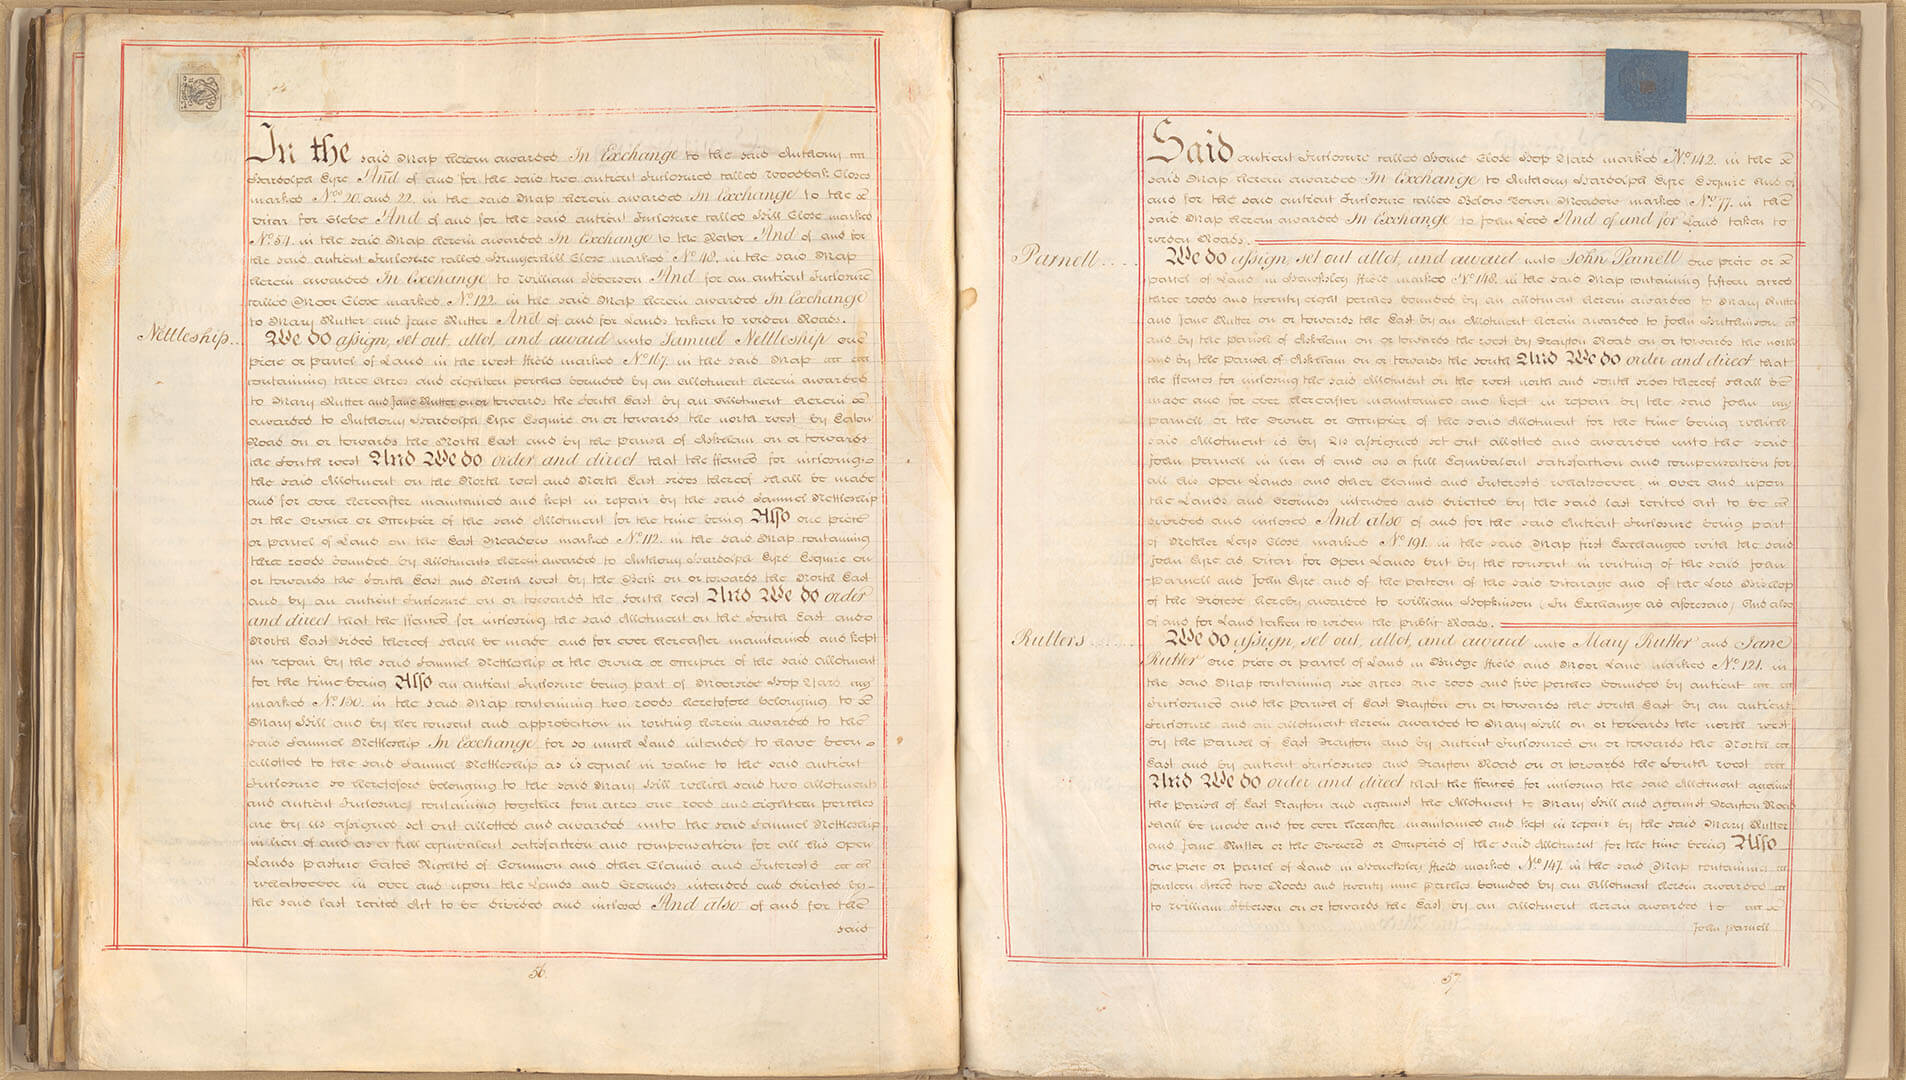 In the said Map herein awarded In Exchange to the said Anthony
Hardolph Eyre And of and for the said two antient Inclosures called Woodbak Closes
marked Nos. 20. and 22. in the said Map herein awarded In Exchange to the
Vicar for Glebe And of and for the said antient Inclosure called Hill Close marked
No. 54. in the said Map herein awarded In Exchange to the Rector And of and for
the said antient Inclosure called Hungerhill Close marked No. 48. in the said Map
herein awarded In Exchange to William Ibberson And for an antient Inclosure
called Moor Close marked No. 122. in the said Map herein awarded In Exchange
to Mary Rutter and Jane Rutter And of and for Lands taken to widen Roads.
Nettleship..
We do assign, set out, allot, and award unto Samuel Nettleship one
piece or parcel of Land in the West Field marked No. 167. in the said Map
containing three acres and eighteen perches bounded by an Allotment herein awarded
to Mary Rutter and Jane Rutter on or towards the South East by an Allotment herein
awarded to Anthony Hardolph Eyre Esquire on or towards the North West by Eaton
Road on or towards the North East and by the Parish of Askham on or towards
the South West And We do order and direct that the ffences for inclosing
the said Allotment on the North West and North East sides thereof shall be made
and for ever hereafter maintained and kept in repair by the said Samuel Nettleship
or the Owner or Occupier of the said Allotment for the time being Also one piece
or parcel of Land on the East Meadow marked No. 112. in the said Map containing
three roods bounded by Allotments herein awarded to Anthony Hardolph Eyre Esquire on
or towards the South East and North West by the Beck on or towards the North East
and by an antient Inclosure on or towards the South West And We do order
and direct that the ffences for inclosing the said Allotment on the South East and
North East sides thereof shall be made and for ever hereafter maintained and kept
in repair by the said Samuel Nettleship or the Owner or Occupier of the said Allotment
for the time being Also an antient Inclosure being part of Moorside Hop Yard
marked No. 130. in the said Map containing two roods heretofore belonging to
Mary Hill and by her consent and approbation in writing herein awarded to the
said Samuel Nettleship In Exchange for so much Land intended to have been
allotted to the said Samuel Nettleship as is equal in value to the said antient
Inclosure so heretofore belonging to the said Mary Hill which said two allotments
and antient Inclosure containing together four acres one rood and eighteen perches
are by us assigned set out allotted and awarded unto the said Samuel Nettleship
in lieu of and as a full equivalent satisfaction and compensation for all his Open
Lands Pasture Gates Rights of Common and other Claims and Interests
whatsoever in over and upon the Lands and Grounds intended and directed by
the said last recited Act to be divided and inclosed And also of and for the
said
56
Said antient Inclosure called Home Close Hop Yard marked No. 142. in the
said Map herein awarded In Exchange to Anthony Hardolph Eyre Esquire And of
and for the said antient Inclosure called Below Town Meadow marked No. 77. in the
said Map herein awarded In Exchange to John Lees And of and for Land taken to
widen Roads.
Parnell....
We do assign, set out allot, and award unto John Parnell one piece or
parcel of Land in Hawksley ffield marked No. 148. in the said Map containing fifteen acres
three roods and twenty eight perches bounded by an allotment herein awarded to Mary Rutter
and Jane Rutter on or towards the East by an Allotment herein awarded to John Hutchinson
and by the Parish of Askham on or towards the West by Drayton Road on or towards the North
and by the Parish of Askham on or towards the South And We do order and direct that
the ffences for inclosing the said Allotment on the West North and South sides thereof shall be
made and for ever hereafter maintained and kept in repair by the said John
Parnell or the Owner or Occupier of the said Allotment for the time being which
said Allotment is by Us assigned set out allotted and awarded unto the said
John Parnell in lieu of and as a full Equivalent satisfaction and compensation for
all his Open Lands and other Claims and Interests whatsoever in over and upon
the Lands and Grounds intended and directed by the said last recited Act to be
divided and inclosed And also of and for the said Antient Inclosure being part
of Nether Leys Close marked No. 191. in the said Map first Exchanged with the said
John Eyre as Vicar for Open Lands but by the consent in writing of the said John
Parnell and John Eyre and of the Patron of the said Vicarage and of the Lord Bishop
of the Diocese hereby awarded to William Hopkinson In Exchange as aforesaid, And also
of and for Land taken to widen the public Roads.
Rutters......
We do assign, set out, allot, and award unto Mary Rutter and Jane
Rutter one piece or parcel of Land in Bridge ffield and Moor Lane marked No. 121. in
the said Map containing six acres one rood and five perches bounded by antient
Inclosures and the Parish of East Drayton on or towards the South East by an antient
Inclosure and an allotment herein awarded to Mary Hill on or towards the North West
by the Parish of East Drayton and by antient Inclosures on or towards the North
East and by antient Inclosures and Drayton Road on or towards the South West
And We do order and direct that the ffences for inclosing the said Allotment against
the Parish of East Drayton and against the Allotment to Mary Hill and against Drayton Road
shall be made and for ever hereafter maintained and kept in repair by the said Mary Rutter
and Jane Rutter or the Owners or Occupiers of the said Allotment for the time being Also
one piece or parcel of Land in Hawksley ffield marked No. 147. in the said Map containing
fourteen Acres two Roods and twenty nine Perches bounded by an Allotment herein awarded
to William Ibberson on or towards the East by an allotment herein awarded to
John Parnell
57